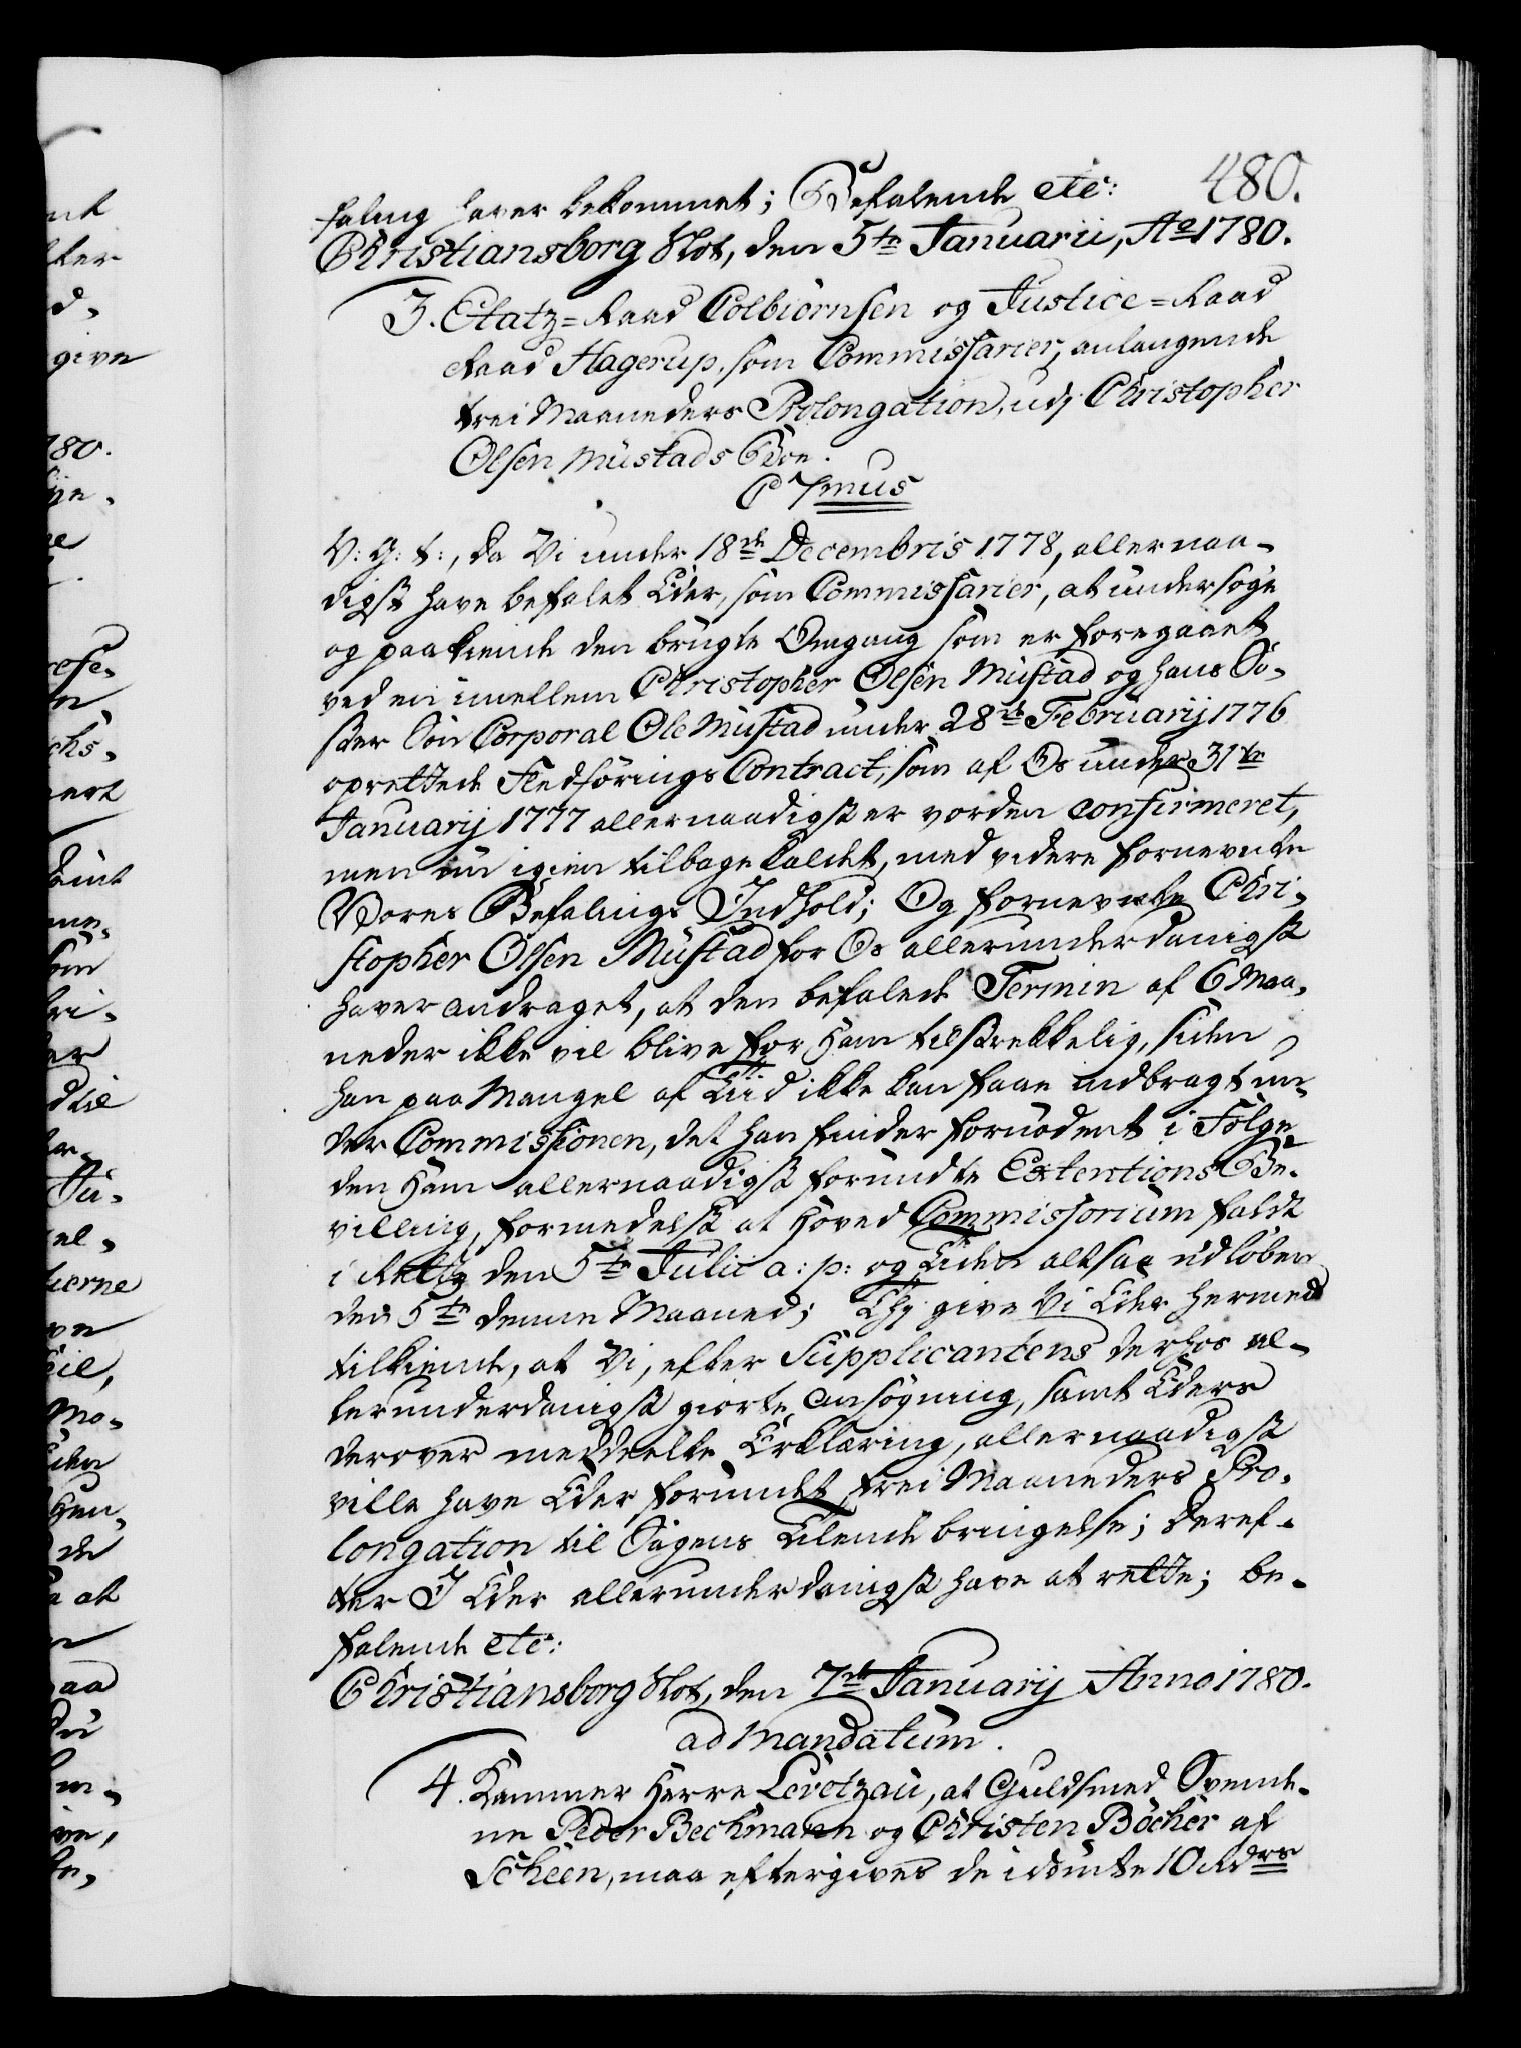 480.
faling haver bekommet; Befalende etc:
Christiansborg Slot, den 5te Januarii, Ao 1780.
3. Etatz=Raad Colbiørnsen og Justice=Raad
Raad Hagerup, som Commissarier, anlangende
trei Maaneders Prolongation, udj Christopher
Olsen Mustads
C 7mus
V: G: t:, da Vi under 18de Decembris 1778, allernaa-
digst have befalet Eder, som Commissarier, at undersøge
og paakiende den brugte Omgang som er foregaaet
ved en imellem Christopher Olsen Mustad og hans Sø-
ster Søn Corporal Ole Mustad under 28de Februarij 1776
oprettede Fledførings Contract, som af Os under 31te
Januarij 1777 allernaadigst er vorden confirmeret,
men nu igien tilbagekaldet, med videre fornevnte
Vores Befalings Indhold; Og fornevnte Chri-
stopher Olsen Mustad for Os allerunderdanigst
haver andraget, at den befalede Termin af 6 Maa-
neder ikke vil blive for Ham tilstrekkelig, siden
han paa Mangel af Tiid ikke kan faae indbragt un-
der Commissionen, det han finder fornødent i Følge
den Ham allernaadigst forundte Extentions Be-
villing, formedelst at Hoved Commissorium faldt
i Rette den 5te Julii a: p: og Tiden altsaa udløben
den 5te denne Maaned; Thj give Vi Eder hermed
tilkiende, at Vi, efter Supplicantens derhos al-
lerunderdanigst giorte Ansøgning, samt Eders
derover meddeelte Erklæring, allernaadigst
ville have Eder forundt trei Maaneders Pro-
longation til Sagens Tilendebringelse; Deref-
ter I Eder allerunderdanigst have at rette; be-
falende etc:
Christiansborg Slot, den 7de Januarij Anno 1780.
ad Mandatum.
4. Kammer Herre Levetzau, at Guldsmed Svende-
ne Peder Bechmann og Christen Böcher af
Scheen, maa eftergives de idømte 10 Rdrs